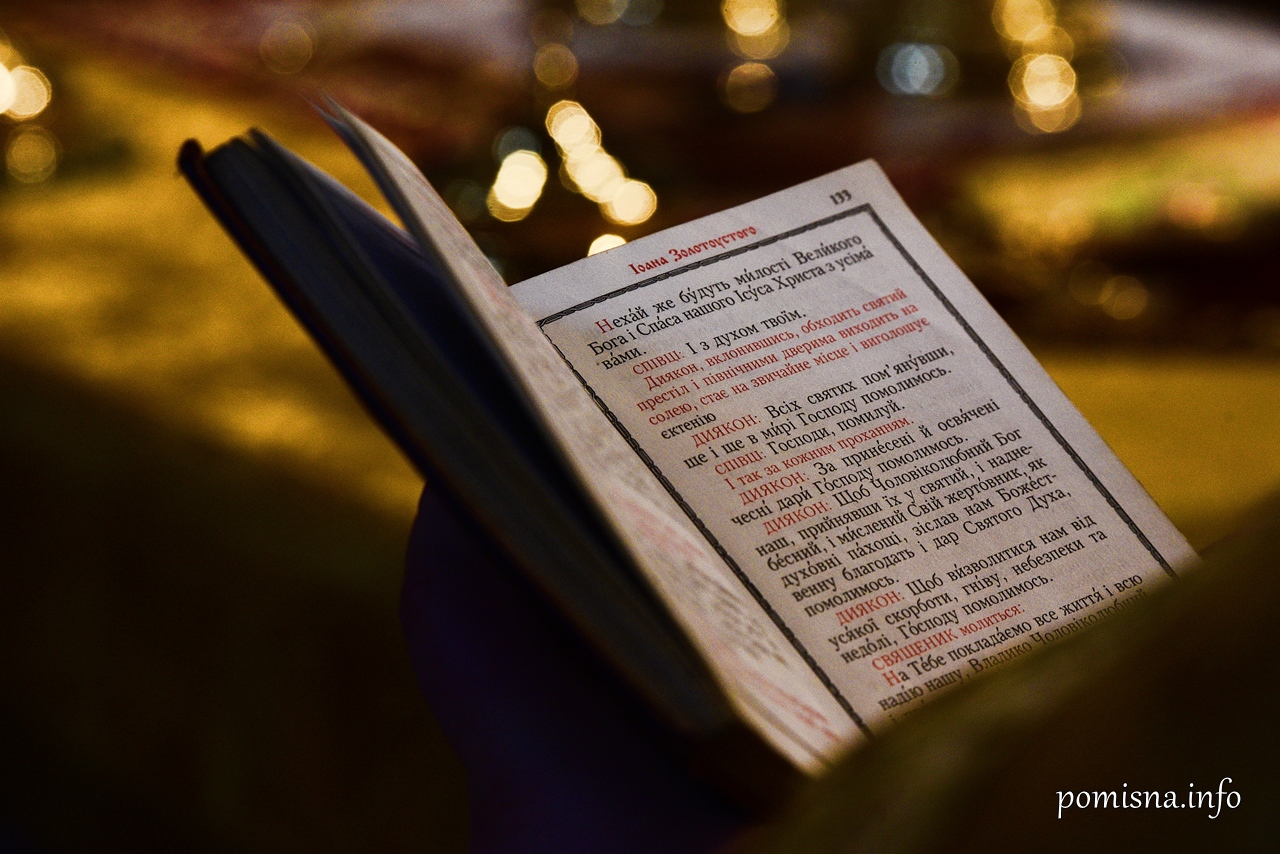 133
Іоана Золотоустого
Неха́й же бу́дуть ми́лості Вели́кого
Бога і Спа́са нашого Ісу́са Христа з усіма́
ва́ми.
СПІВЦІ: І з духом твоїм.
Диякон, вклонившись, обходить святий
престіл і північними дверима виходить на
солею, стає на звичайне місце і виголошує
єктенію
ДИЯКОН: Всіх святих пом'яну́вши,
ще і ще в ми́рі Господу помолимось.
СПІВЦІ: Господи, помилуй.
І так за кожним проханням.
ДИЯКОН: За прине́сені й освя́чені
чесні́ дари́ Го́споду помолимось.
ДИЯКОН: Щоб Чоловіколю́бний Бог
наш, прийня́вши їх у святи́й, і надне-
бе́сний, і ми́слений Свій же́ртовник, як
духо́вні па́хощі, зісла́в нам Боже́ст-
венну благодать і дар Святого Духа,
помолимось.
ДИЯКОН: Щоб ви́зволитися нам від
уся́кої скорботи, гні́ву, небезпеки та
недо́лі, Го́споду помолимось.
СВЯЩЕНИК молиться:
На Те́бе поклада́ємо все життя́ і всю
наді́ю нашу, Владико Чоловіколюбний
pomisna.info